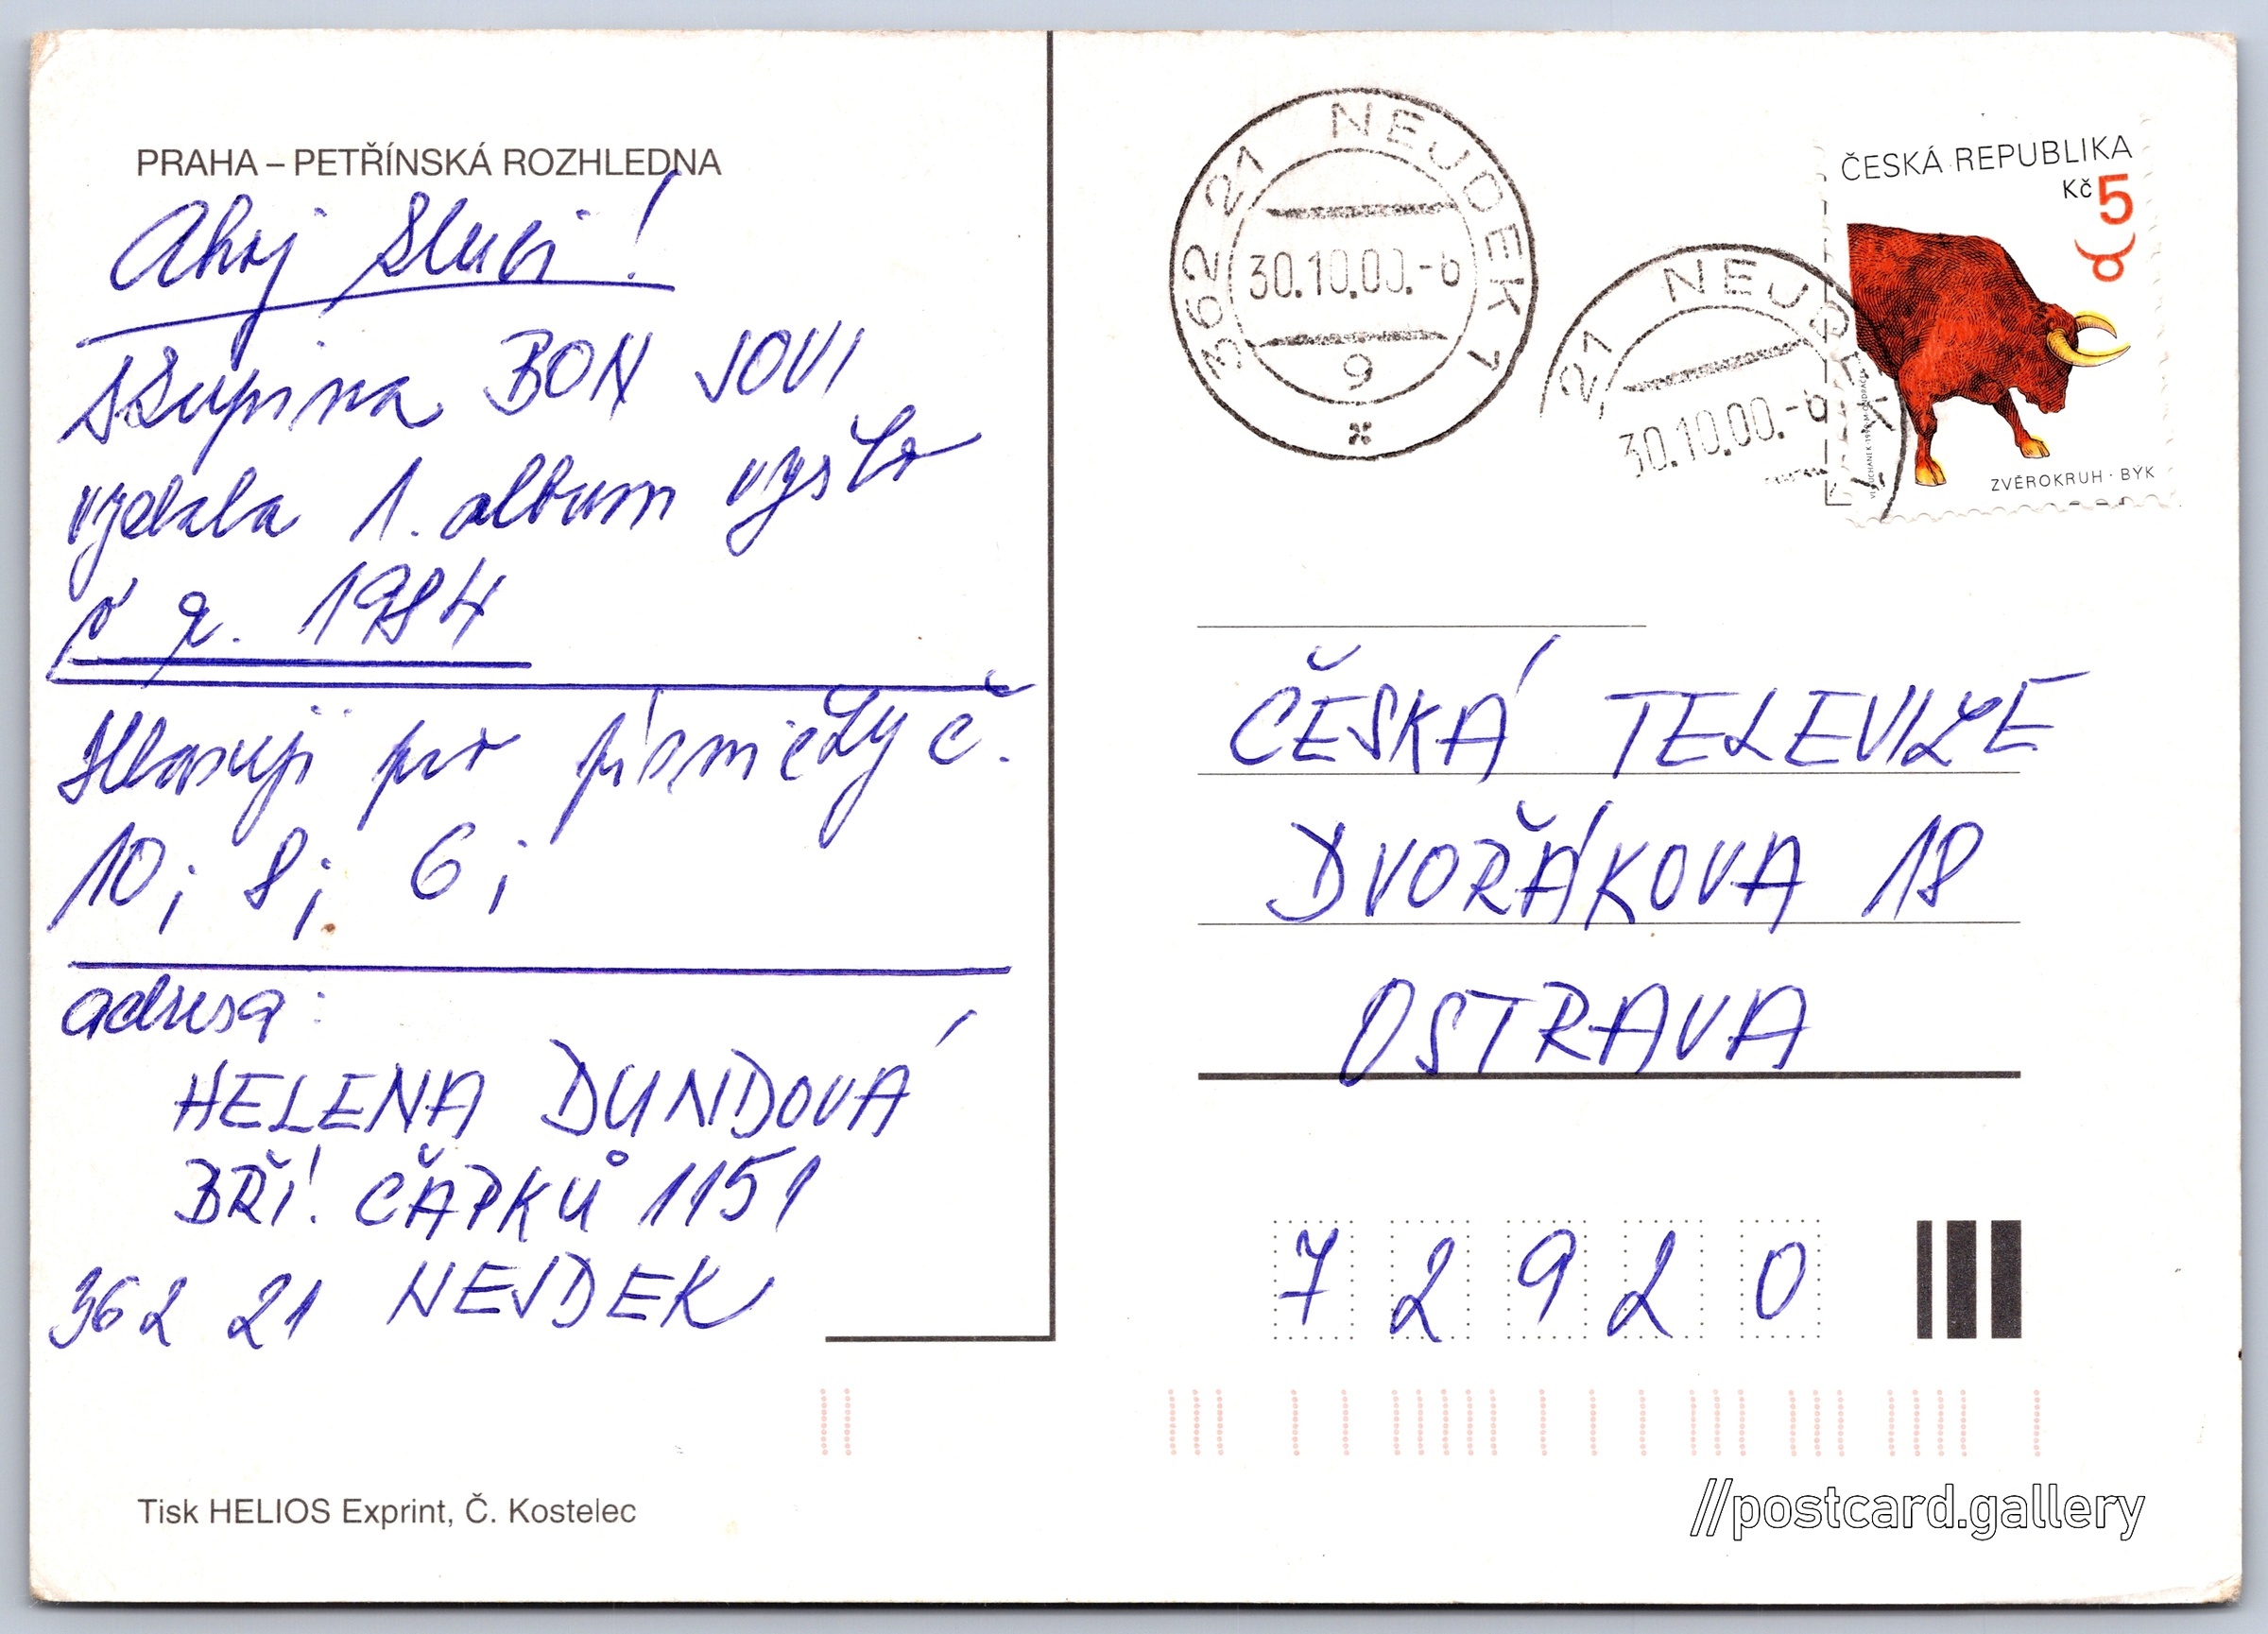 PRAHA – PETŘÍNSKÁ ROZHLEDNA
Ahoj Sluci!
skupina BON JOVI
vydala 1. album vyšlo
v r. 1984
Hlasuji pro písničky č.
10; 8; 6;
adresa:
HELENA DUNDOVÁ
BŘÍ. ČAPKŮ 1151
362 21 NEJDEK
Tisk HELIOS Exprint, Č. Kostelec
362 21 NEJDEK 1
30.10.00.-6
9
21 NEJDEK 1
30.10.00.-6
ČESKÁ REPUBLIKA
Kč 5
ZVĚROKRUH · BÝK
ČESKÁ TELEVIZE
DVOŘÁKOVA 18
OSTRAVA
7 2 9 2 0
//postcard.gallery